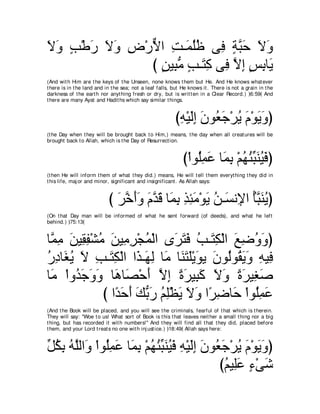 وَلاَ حَبَّةٍ فِى ظُلُمَـتِ الاٌّرْضِ وَلاَ رَطْبٍ وَلاَ
يَابِسٍ إِلاَّ فِى كِتَـبٍ مُّبِينٍ )
(And with Him are the keys of the Unseen, none knows them but He. And He knows whatever
there is in the land and in the sea; not a leaf falls, but He knows it. There is not a grain in the
darkness of the earth nor anything fresh or dry, but is written in a Clear Record.) (6:59) And
there are many Ayat and Hadiths which say similar things.
(وَيَوْمَ يُرْجَعُونَ إِلَيْهِ)
(the Day when they will be brought back to Him,) means, the day when all creatures will be
brought back to Allah, which is the Day of Resurrection.
(فَيُنَبِّئُهُمْ بِمَا عَمِلُواْ)
(then He will inform them of what they did.) means, He will tell them everything they did in
this life, major and minor, significant and insignificant. As Allah says:
(يُنَبَّأُ الإِنسَـنُ يَوْمَئِذِ بِمَا قَدَّمَ وَأَخَّرَ )
(On that Day man will be informed of what he sent forward (of deeds), and what he left
behind.) (75:13)
(وَوُضِعَ الْكِتَـبُ فَتَرَى الْمُجْرِمِينَ مُشْفِقِينَ مِمَّا
فِيهِ وَيَقُولُونَ يوَيْلَتَنَا مَا لِهَـذَا الْكِتَـبِ لاَ يُغَادِرُ
صَغِيرَةً وَلاَ كَبِيرَةً إِلاَّ أَحْصَاهَا وَوَجَدُواْ مَا
عَمِلُواْ حَاضِرًا وَلاَ يَظْلِمُ رَبُّكَ أَحَدًا )
(And the Book will be placed, and you will see the criminals, fearful of that which is therein.
They will say: "Woe to us! What sort of Book is this that leaves neither a small thing nor a big
thing, but has recorded it with numbers!'' And they will find all that they did, placed before
them, and your Lord treats no one with injustice.) (18:49) Allah says here:
(وَيَوْمَ يُرْجَعُونَ إِلَيْهِ فَيُنَبِّئُهُمْ بِمَا عَمِلُواْ وَاللَّهُ بِكُلِّ
شَىْءٍ عَلِيمٌ)